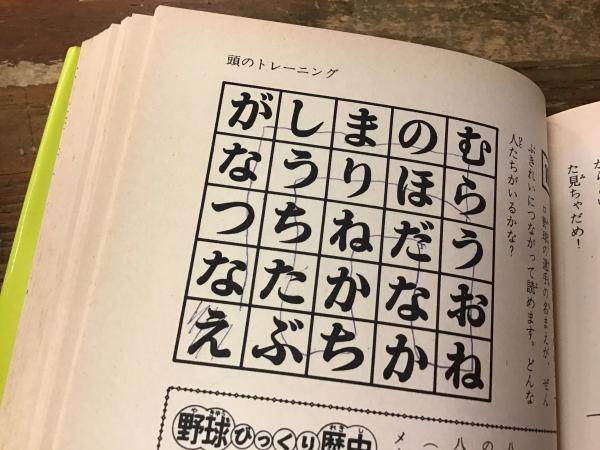 頭のトレーニング
野球の選手の名まえが、ぜん
ぶきれいにつながって読めます。どんな
人たちがいるかな？
がしまのむ
なうりほら
つちねだう
なたかなお
えぶちかね
野球びっくり歴史
た見ちゃだめ！